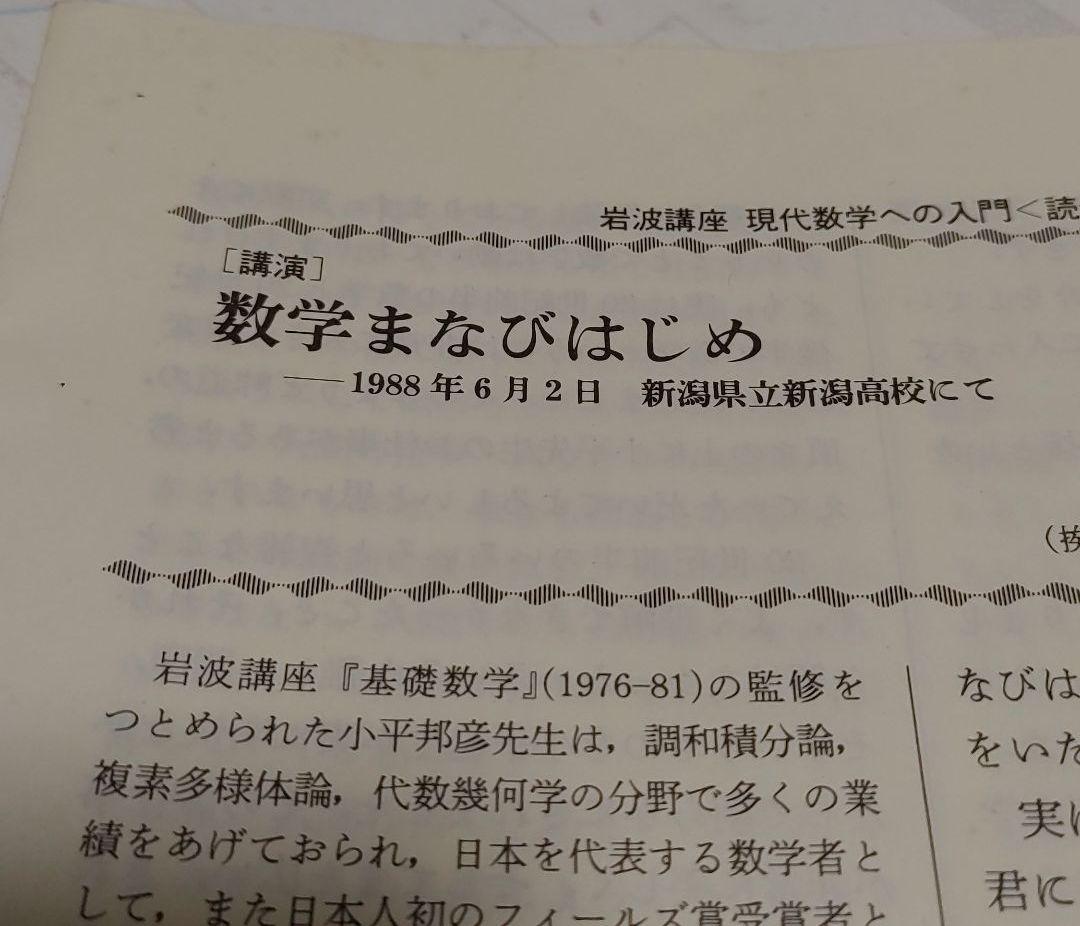 岩波講座 現代数学への入門<読
[講演]
数学まなびはじめ
——1988年6月2日 新潟県立新潟高校にて
(挨
岩波講座『基礎数学』(1976-81)の監修を
つとめられた小平邦彦先生は,調和積分論,
複素多様体論,代数幾何学の分野で多くの業
績をあげておられ,日本を代表する数学者と
して,また日本人初のフィールズ賞受賞者と
なびは
をいた
実は
君に